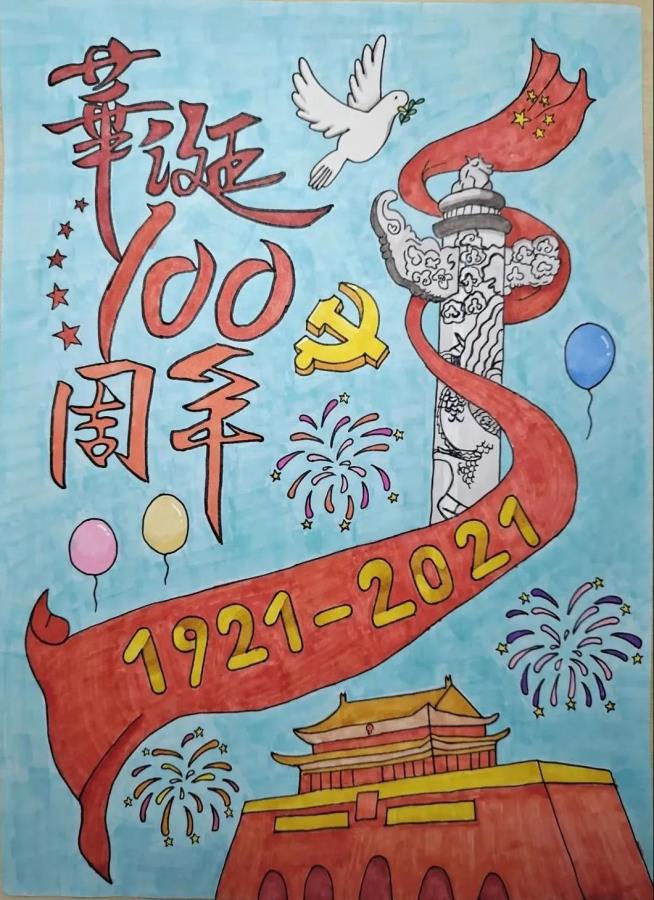 華诞
100
周年
1921-2021